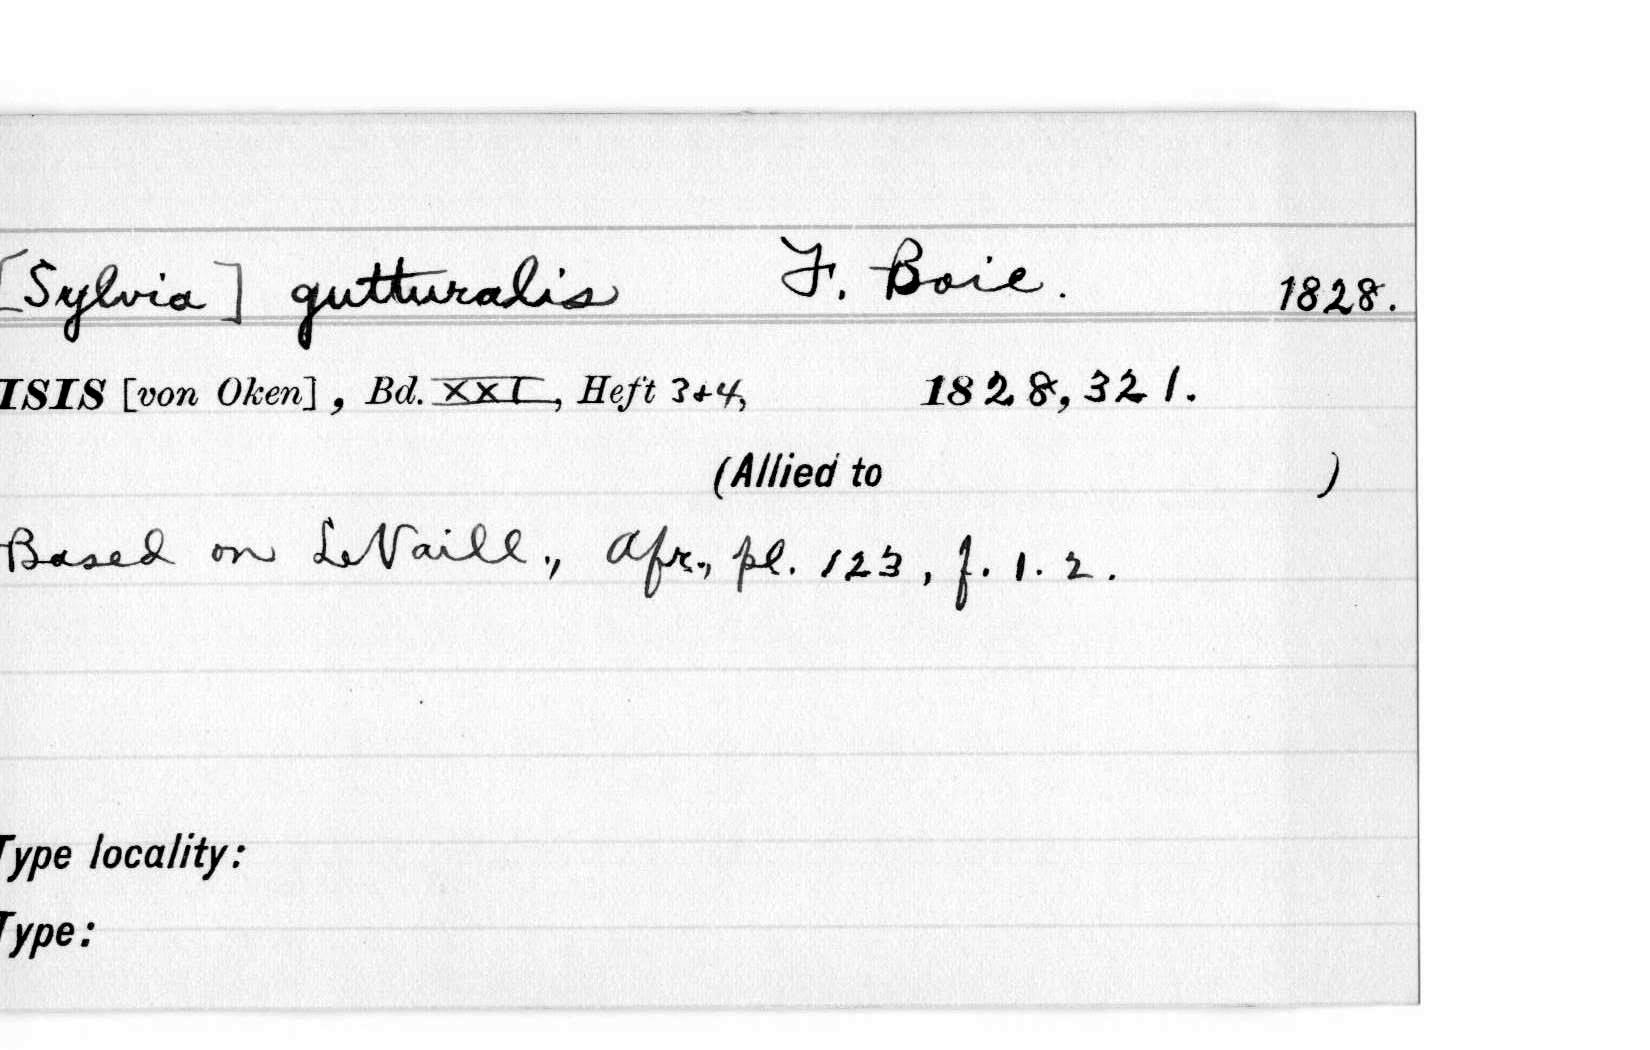 [Sylvia] gutturalis F. Boie. 1828.
ISIS [von Oken], Bd. XXI, Heft 3+4, 1828, 321.
(Allied to )
Based on LeVaill., Afr., pl. 123, f. 1. 2.
Type locality:
Type: